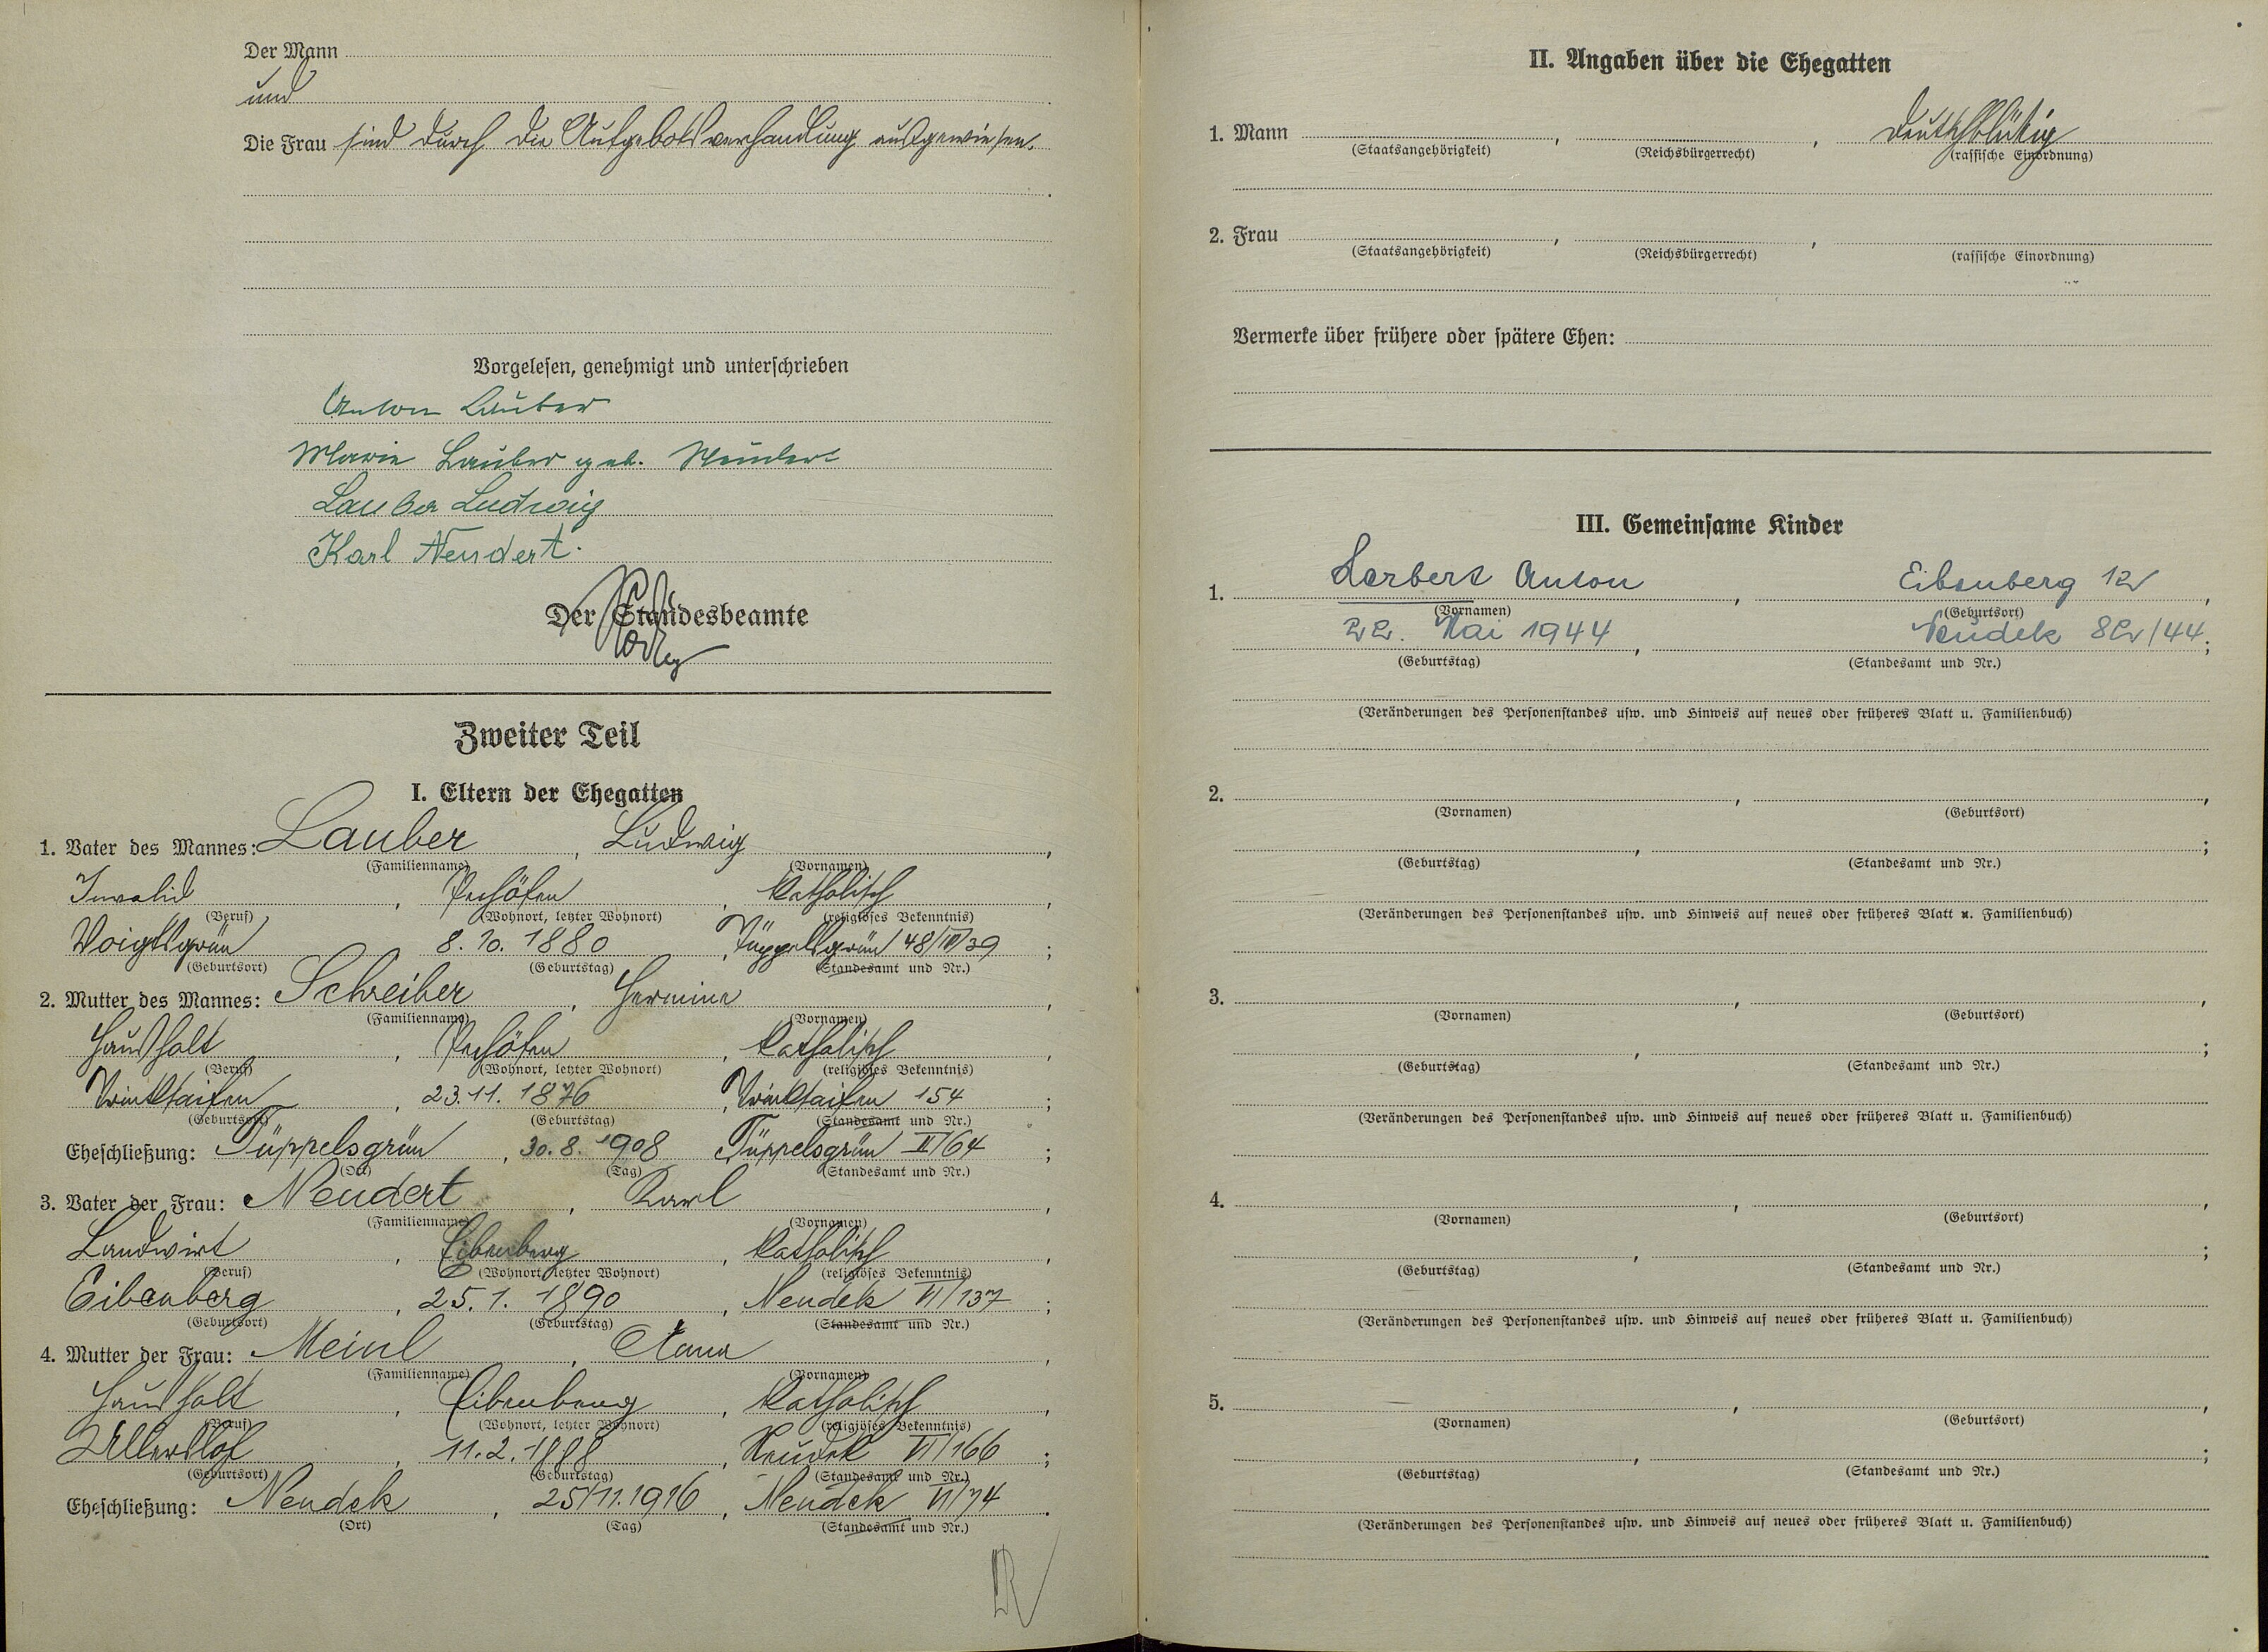 Der Mann
und
Die Frau sind durch die Aufgebotsverhandlung ausgewiesen.
Vorgelesen, genehmigt und unterschrieben
Anton Lauber
Marie Lauber geb. Neudert
Lauber Ludwig
Karl Neudert.
Der Standesbeamte
Zweiter Teil
I. Eltern der Ehegatten
1. Vater des Mannes: Lauber, Ludwig,
(Familienname) (Vornamen)
Invalid, Pechöfen, katholisch,
(Beruf) (Wohnort, letzter Wohnort) (religiöses Bekenntnis)
Voigtsgrün, 8. 10. 1880, Tüppelsgrün 48/III/39;
(Geburtsort) (Geburtstag) (Standesamt und Nr.)
2. Mutter des Mannes: Schreiber, Hermine,
(Familienname) (Vornamen)
Haushalt, Pechöfen, katholisch,
(Beruf) (Wohnort, letzter Wohnort) (religiöses Bekenntnis)
23. 11. 1876, 154;
(Geburtsort) (Geburtstag) (Standesamt und Nr.)
Eheschließung: Tüppelsgrün, 30. 8. 1908 Tüppelsgrün II/64;
(Ort) (Tag) (Standesamt und Nr.)
3. Vater der Frau: Neudert, Karl,
(Familienname) (Vornamen)
Landwirt, Eibenberg, katholisch,
(Beruf) (Wohnort, letzter Wohnort) (religiöses Bekenntnis)
Eibenberg, 25. 1. 1890, Neudek VI/137;
(Geburtsort) (Geburtstag) (Standesamt und Nr.)
4. Mutter der Frau: Meinl, Anna,
(Familienname) (Vornamen)
Haushalt, Eibenberg, katholisch,
(Beruf) (Wohnort, letzter Wohnort) (religiöses Bekenntnis)
Ullersloh, 11. 2. 1888, Neudek VI/166;
(Geburtsort) (Geburtstag) (Standesamt und Nr.)
Eheschließung: Neudek, 25/11. 1916, Neudek VI/74.
(Ort) (Tag) (Standesamt und Nr.)
II. Angaben über die Ehegatten
1. Mann , , deutschblütig
(Staatsangehörigkeit) (Reichsbürgerrecht) (rassische Einordnung)
2. Frau , ,
(Staatsangehörigkeit) (Reichsbürgerrecht) (rassische Einordnung)
Vermerke über frühere oder spätere Ehen:
III. Gemeinsame Kinder
1. Herbert Anton, Eibenberg 12,
(Vornamen) (Geburtsort)
22. Mai 1944, Neudek 82/44;
(Geburtstag) (Standesamt und Nr.)
(Veränderungen des Personenstandes usw. und Hinweis auf neues oder früheres Blatt u. Familienbuch)
2. , ,
(Vornamen) (Geburtsort)
, ;
(Geburtstag) (Standesamt und Nr.)
(Veränderungen des Personenstandes usw. und Hinweis auf neues oder früheres Blatt u. Familienbuch)
3. , ,
(Vornamen) (Geburtsort)
, ;
(Geburtstag) (Standesamt und Nr.)
(Veränderungen des Personenstandes usw. und Hinweis auf neues oder früheres Blatt u. Familienbuch)
4. , ,
(Vornamen) (Geburtsort)
, ;
(Geburtstag) (Standesamt und Nr.)
(Veränderungen des Personenstandes usw. und Hinweis auf neues oder früheres Blatt u. Familienbuch)
5. , ,
(Vornamen) (Geburtsort)
, ;
(Geburtstag) (Standesamt und Nr.)
(Veränderungen des Personenstandes usw. und Hinweis auf neues oder früheres Blatt u. Familienbuch)